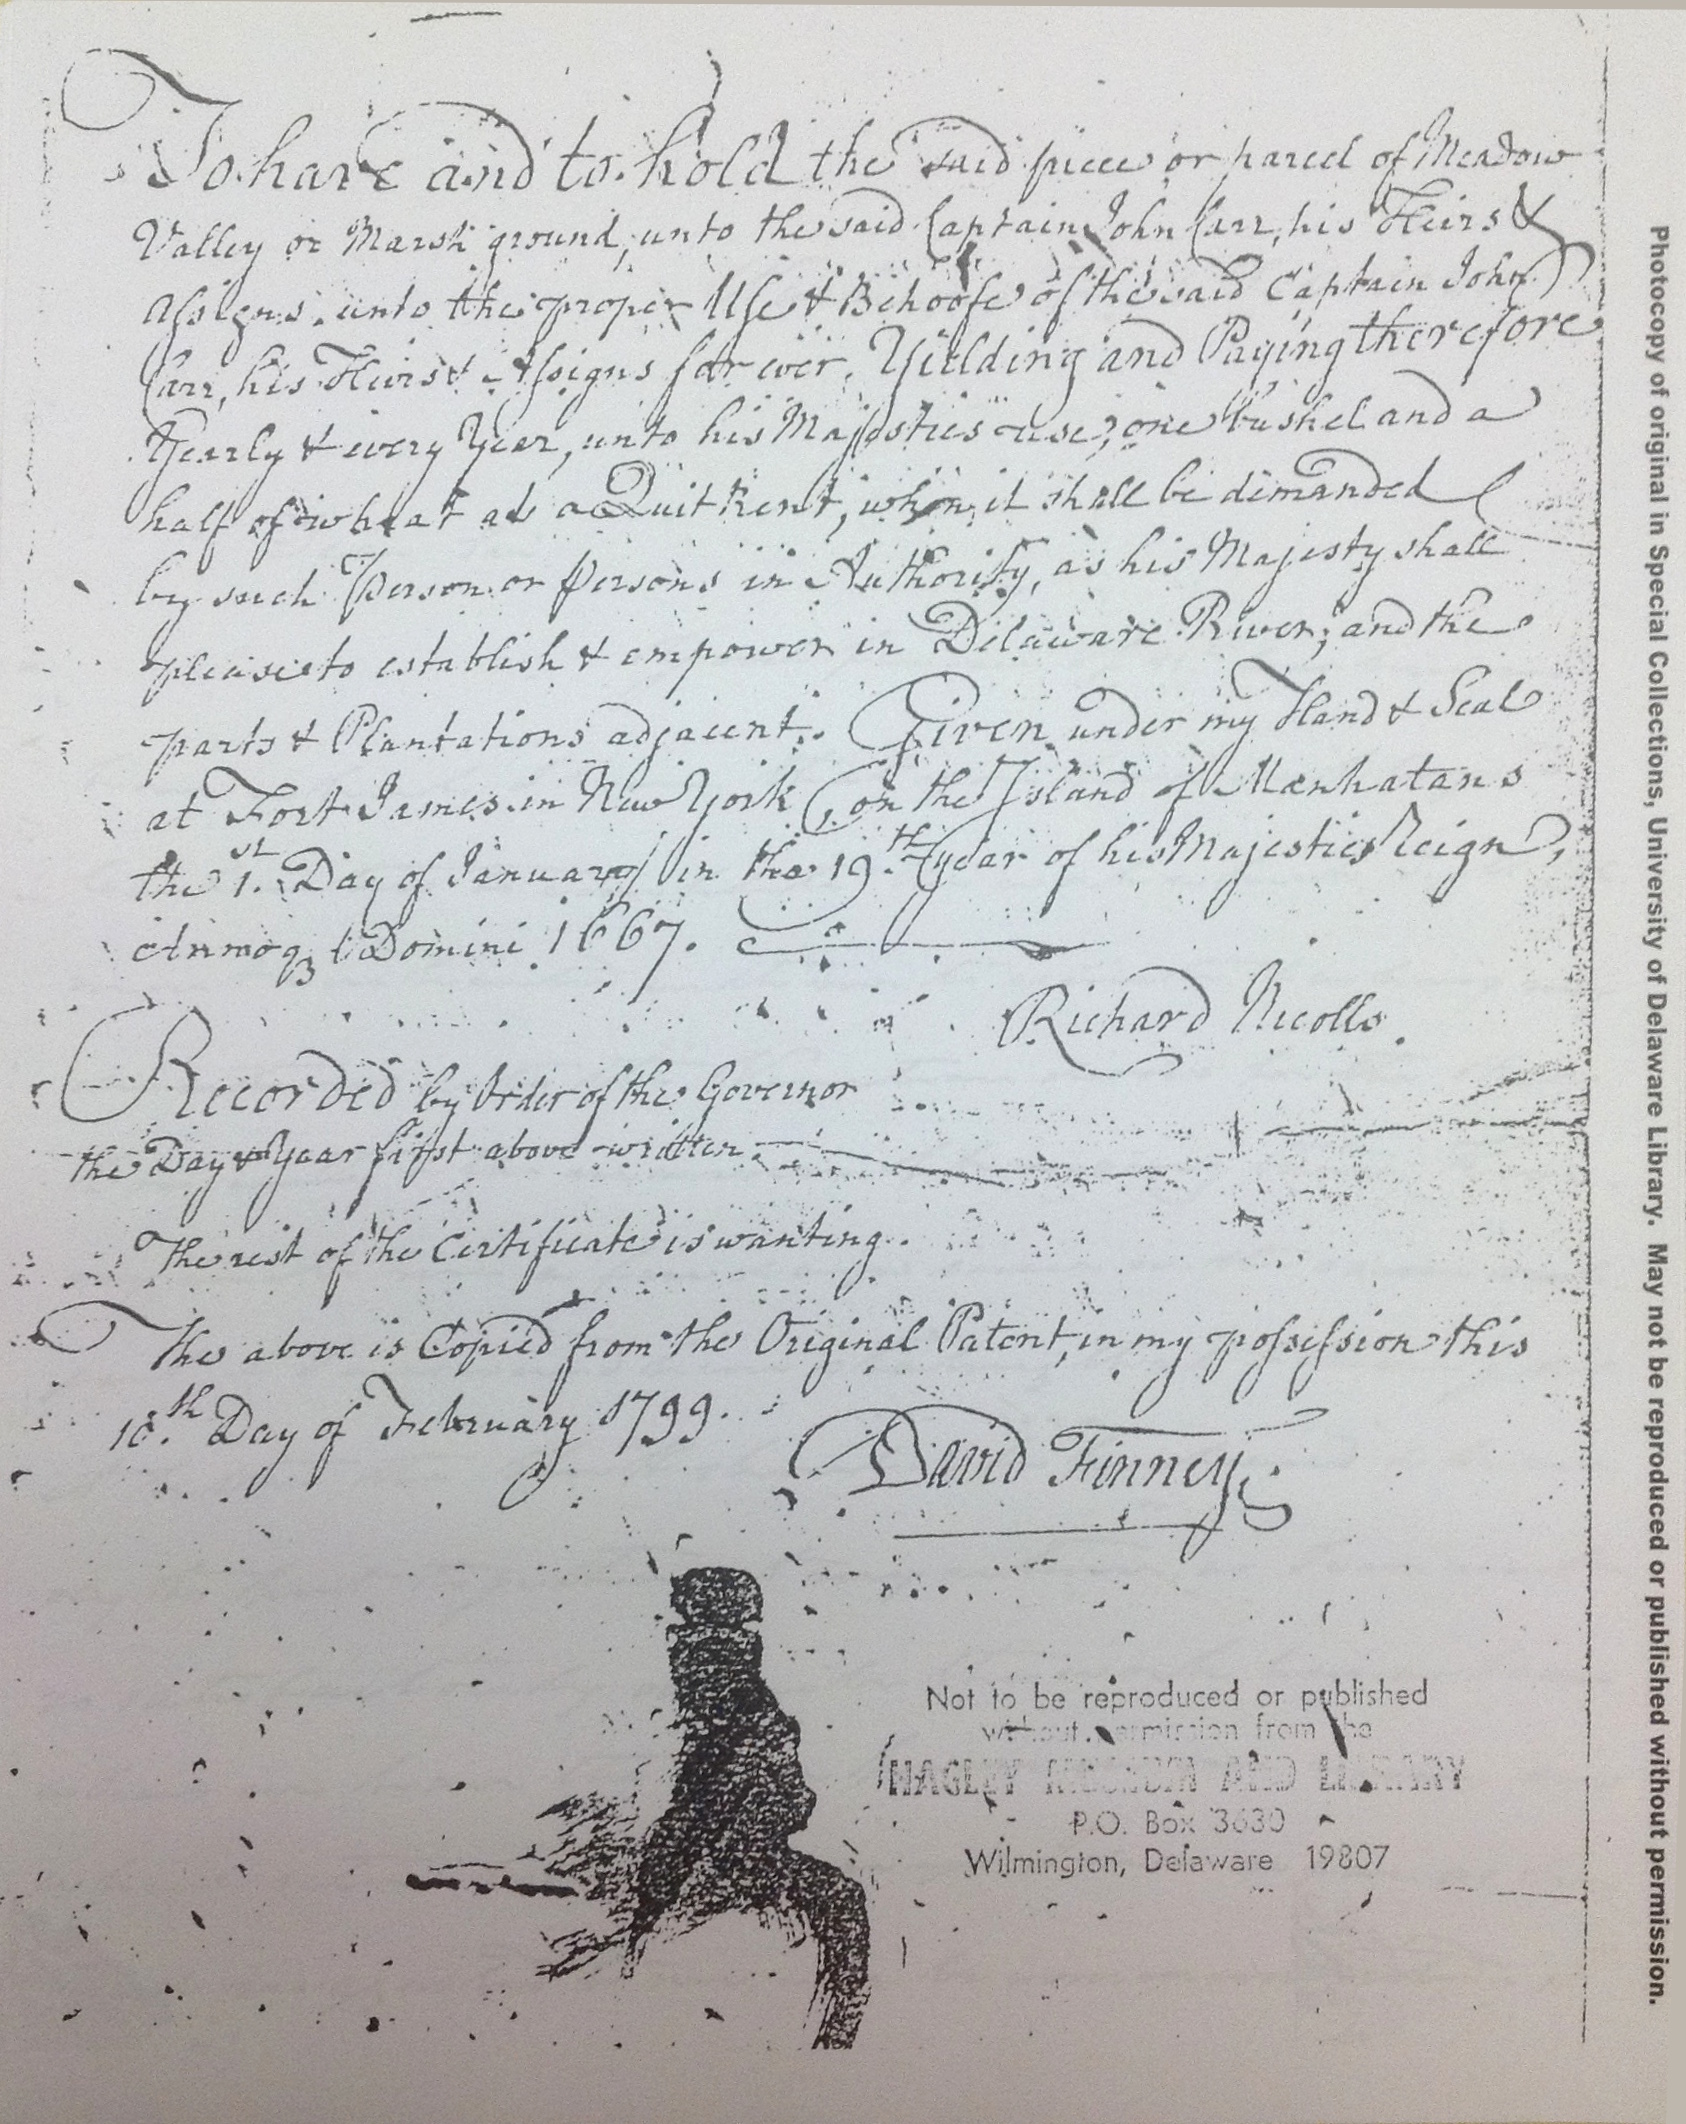 To have and to hold the said piece or parcel of Meadow
Valley or Marsh ground, unto the said Captain John Carr, his Heirs &
Assigns, unto the proper Use & Behoofe of the said Captain John
Carr, his Heirs & Assigns for ever. Yielding and Paying therefore
Yearly & every Year, unto his Majesties use, one bushel and a
half of wheat as a Quit Rent, when it shall be demanded
by such Person or Persons in Authority, as his Majesty shall
please to establish & empower in Delaware River; and the
parts & Plantations adjacent. Given under my Hand & Seal
at Fort James in New York, on the Island of Manhatans
the 1.st Day of January in the 19.th year of his Majesties Reign,
Annoq3 Domini 1667.
Richard Nicolls.
Recorded by Order of the Governor
the Day & Year first above written.
The rest of the Certificate is wanting.
The above is Copied from the Original Patent, in my possession this
18.th Day of February 1799.
David Finney
Not to be reproduced or published
without permission from the
HAGLEY MUSEUM AND LIBRARY
P.O. Box 3630
Wilmington, Delaware 19807
Photocopy of original in Special Collections, University of Delaware Library. May not be reproduced or published without permission.